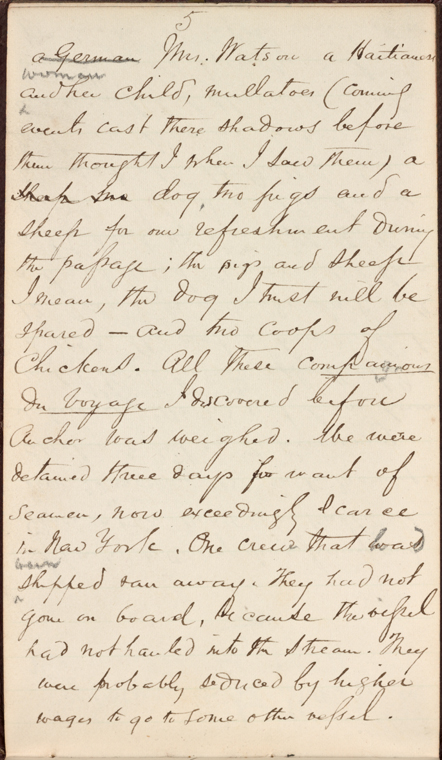 5
a German Mrs. Watson a Haitianess
woman
and her child, mullatoes (coming
events cast there shadows before
them thought I when I saw them) a
dog, two pigs and a
sheep for our refreshment During
the passage; the pigs and sheep
I mean, the dog I trust will be
spared — and two coops of
Chickens. All these companions
du Voyage I discovered before
Anchor was weighed. We were
detained three days for want of
Seamen, now exceedingly scarce
in New York. One crew that had
been
shipped ran away. They had not
gone on board, because the vessel
had not hauled into the Stream. They
were probably seduced by higher
wages to go to some other vessel.